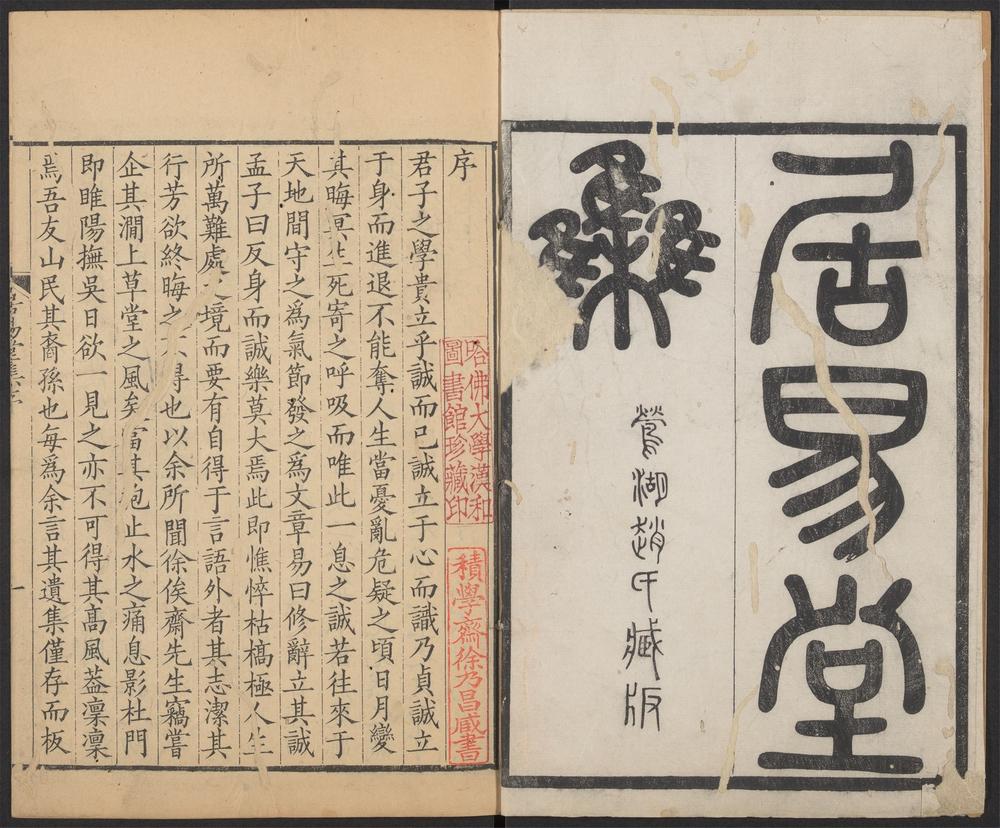 居易堂
集
鶯湖趙氏臧版
序
君子之學貴立乎誠而已誠立于心而識乃貞誠立
于身而進退不能奪人生當憂亂危疑之頃日月變
其晦冥生死寄之呼吸而唯此一息之誠若往來于
天地間守之爲氣節發之爲文章易曰修辭立其誠
孟子曰反身而誠樂莫大焉此即憔悴枯槁極人生
所萬難處之境而要有自得于言語外者其志潔其
行芳欲終晦之不得也以余所聞徐俟齋先生竊嘗
企其澗上草堂之風矣當其抱止水之痛息影杜門
即睢陽撫吳日欲一見之亦不可得其髙風葢凛凛
焉吾友山民其裔孫也每爲余言其遺集僅存而板
哈佛大學漢和
圖書館珍藏印
積學齋徐乃昌臧書
一